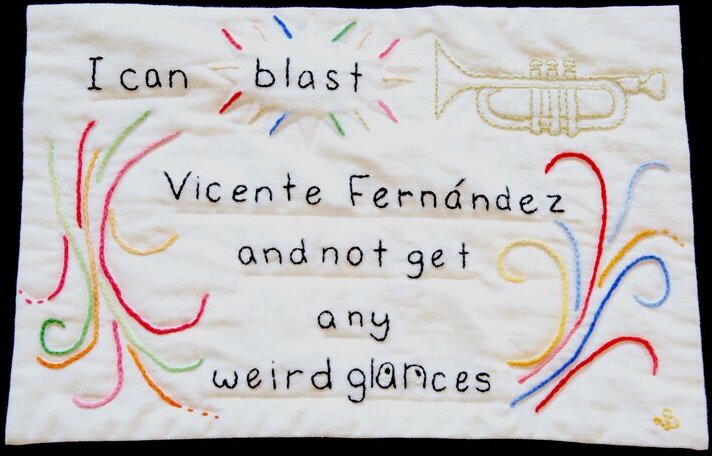 I can blast
Vicente Fernández
and not get
any
weird glances